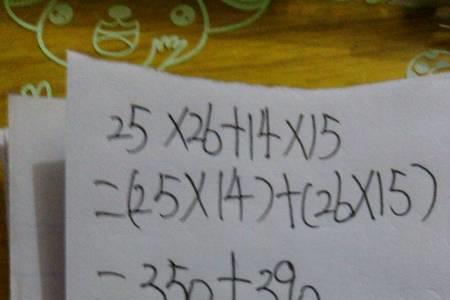 25×26+14×15
=(25×14)+(26×15)
=350+390